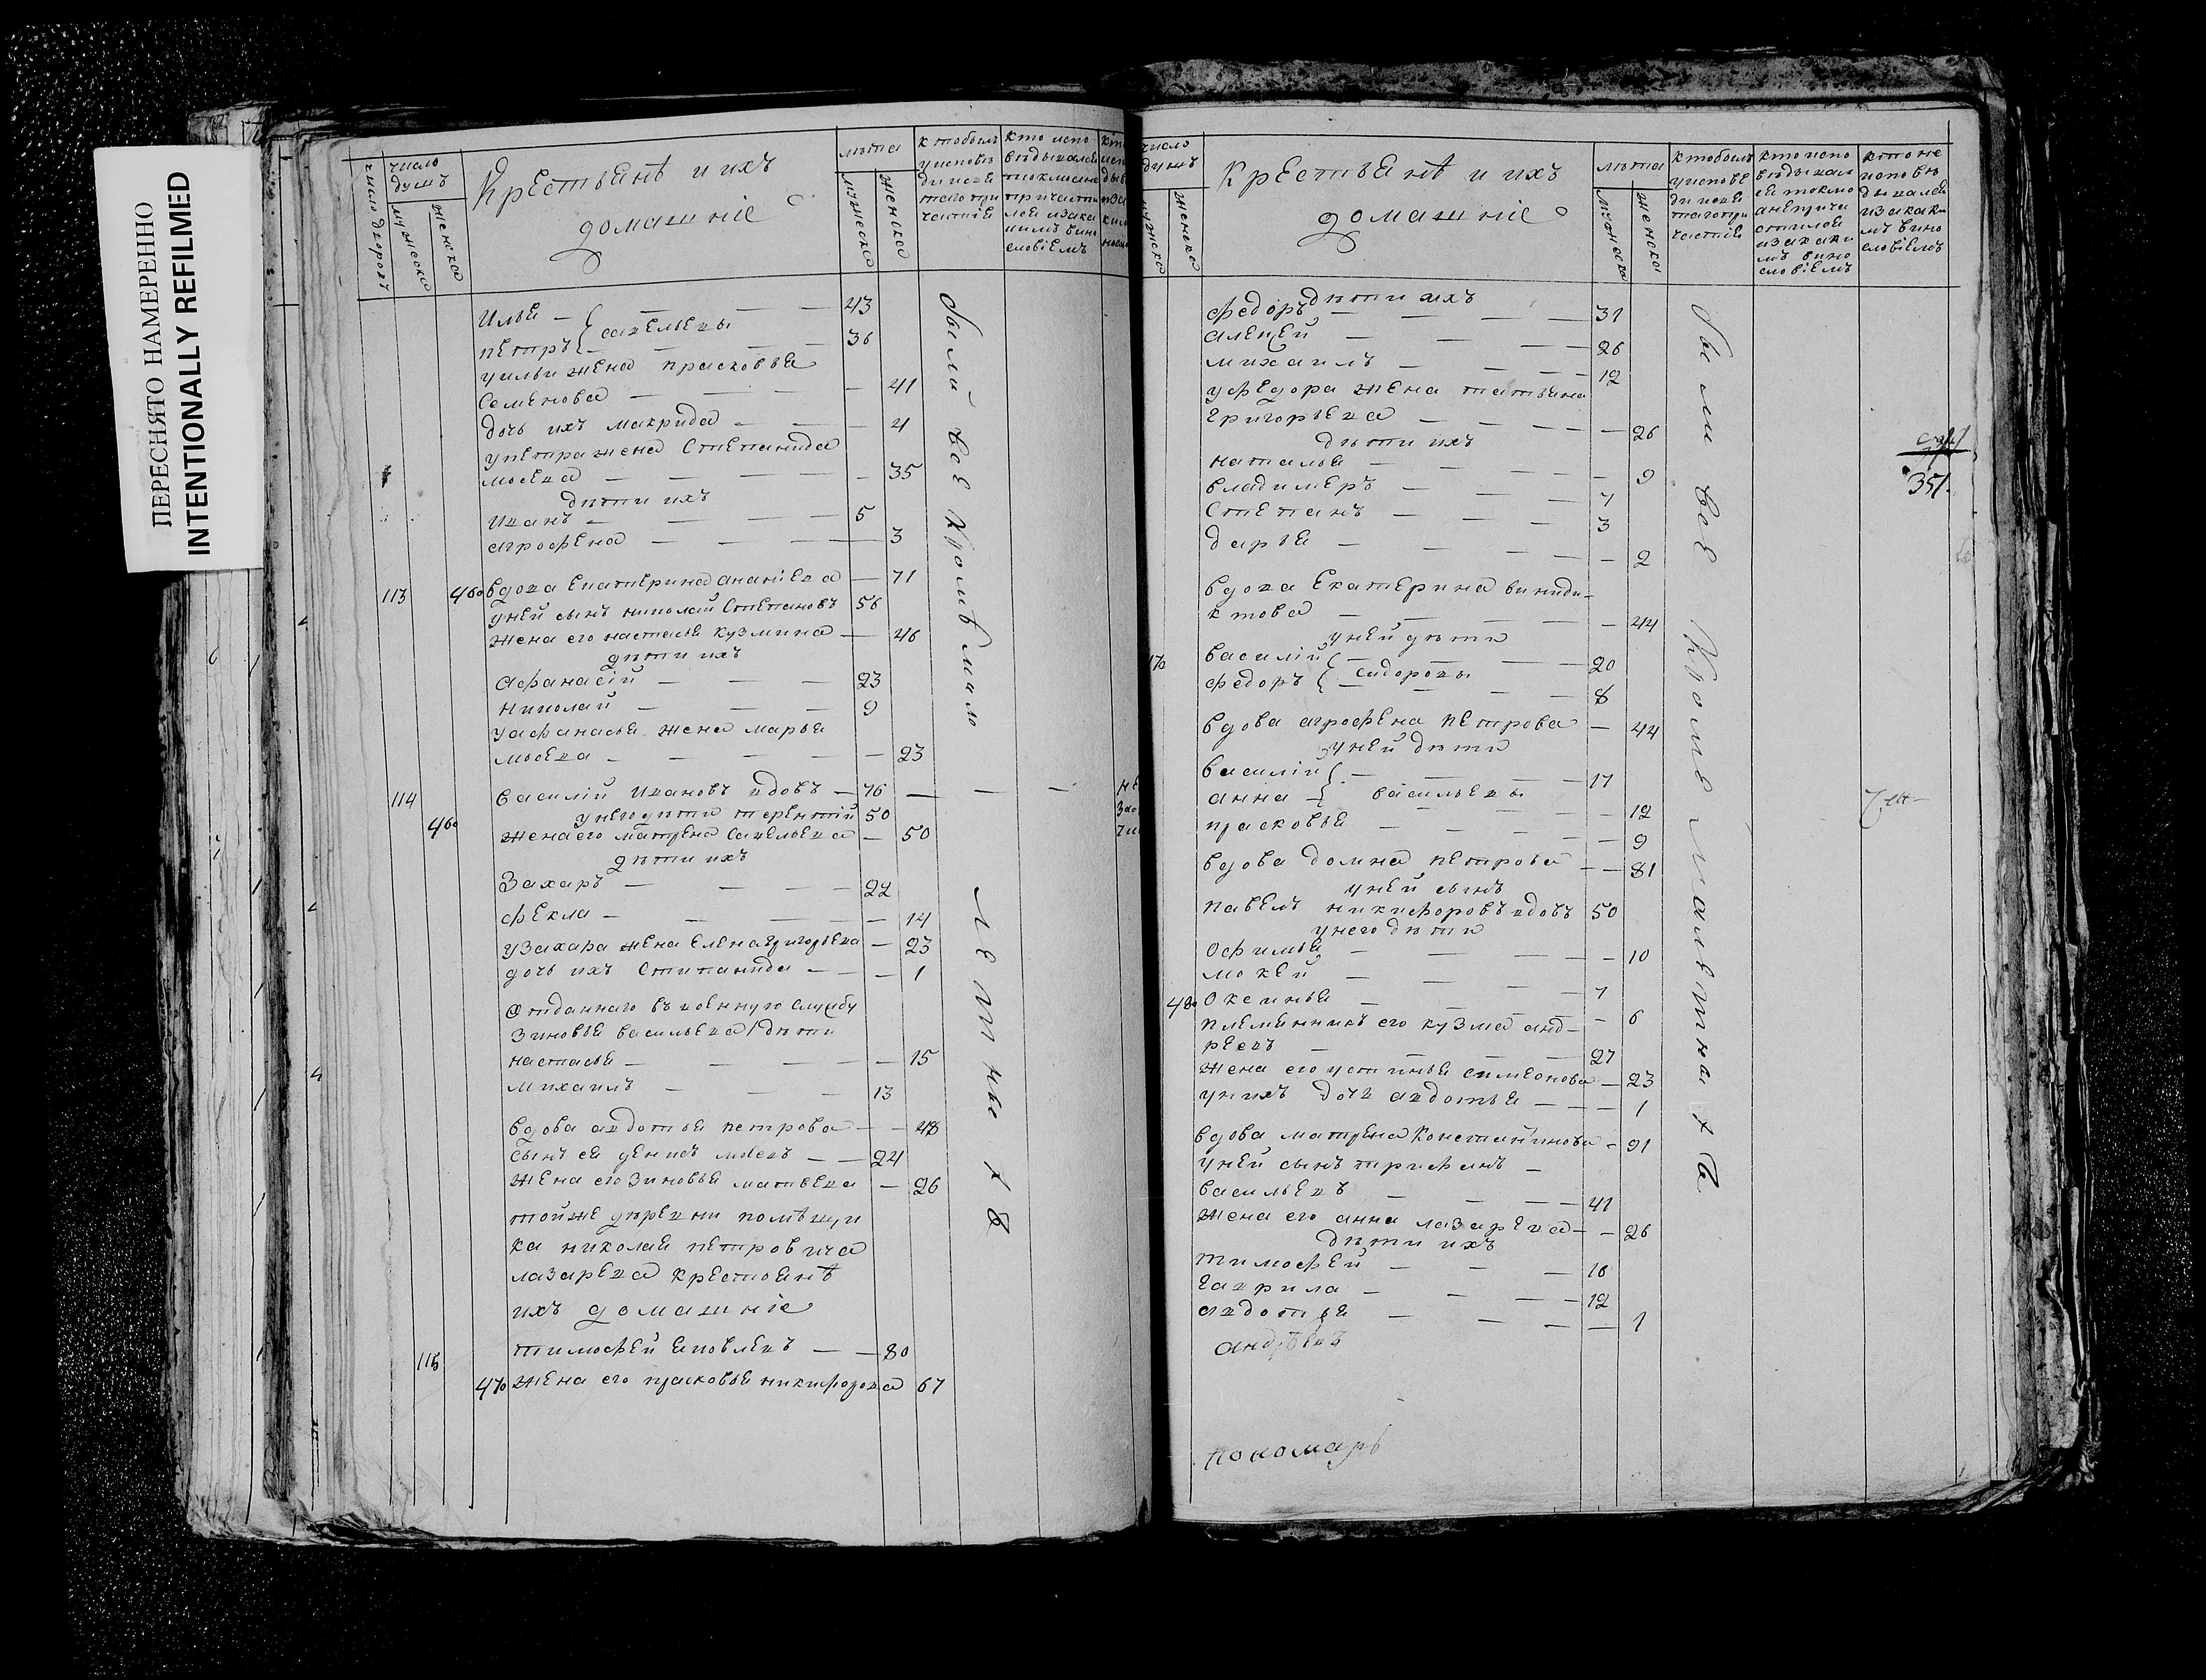 ПЕРЕСНЯТО НАМЕРЕННО
INTENTIONALLY REFILMED
число дворовъ
число душъ
мужеска
женска
Крестьянѣ и ихъ
домашніе
лѣта
мужеска
женска
кто былъ
у исповѣ
ди и свя
таго при
частія
кто испо
вѣдывался
Илья — 43
Петръ — савельевы — 36
у ильи жена прасковья
Семенова — 41
дочь ихъ макрида — 4
у петра жена Степанида
мосева — 35
дѣти ихъ
Иванъ — 5
агрофена — 3
113 460 вдова Екатерина ананіева — 71
у ней сынъ николай Степановъ 56
жена его настасья кузмина — 46
дѣти ихъ
Афанасій — 23
николай — 9
у афанасья жена марья
мосева — 23
114 василій Ивановъ вдовъ — 76
460 у него дѣти терентій 50
жена его матрена савельева — 50
дѣти ихъ
Захаръ — 22
фекла — 14
у захара жена Елена григорьева — 23
дочь ихъ Стипанида — 1
Отданнаго въ военную службу
Зиновья васильева дѣти
настасья — 15
михаилъ — 13
вдова авдотья петрова — 48
сынъ ея денисъ мосевъ — 24
жена его зиновья матвева — 26
той же деревни помѣщи
ка николая петровича
лазарева крестьянѣ
ихъ домашніе
115 тимофей яковлевъ — 80
470 жена его прасковья никифорова 67
были всѣ кромѣ мало
летнихъ
число
душъ
мужеска
женска
Крестьянѣ и ихъ
домашніе
лѣта
мужеска
женска
кто былъ
у исповѣ
ди и свя
таго при
частія
кто испо
вѣдывал
ся токмо
а не прича
стился
и за каки
мъ вино
словіемъ
кто не
исповѣ
дывался
и за каки
мъ вино
словіемъ
дѣти ихъ
федоръ — 31
алексей — 26
михаилъ — 12
у федора жена татьяна
григорьева — 26
дѣти ихъ
наталья — 9
владимеръ — 7
Степанъ — 3
дарья — 2
вдова Екатерина виниди-
ктова — 44
у ней дѣти
170 василій — 20
федоръ — сидоровы — 8
вдова агрофена петрова — 44
у ней дѣти
василій — 17
анна — васильевы — 12
прасковья — 9
вдова домна петрова — 81
у ней сынъ
павелъ никифоровъ вдовъ 50
у него дѣти
Офимья — 10
мокей — 7
480 Оксинья — 6
племянникъ его кузма анд-
реевъ — 27
жена его устинья симеонова — 23
у нихъ дочь авдотья — 1
вдова матрена Константинова — 91
у ней сынъ трифанъ —
васильевъ — 41
жена его анна лазарева — 26
дѣти ихъ
тимофей — 16
гаврила — 12
авдотья — 1
андрѣевъ
пономарь
были всѣ кромѣ малѣтнихъ
351.